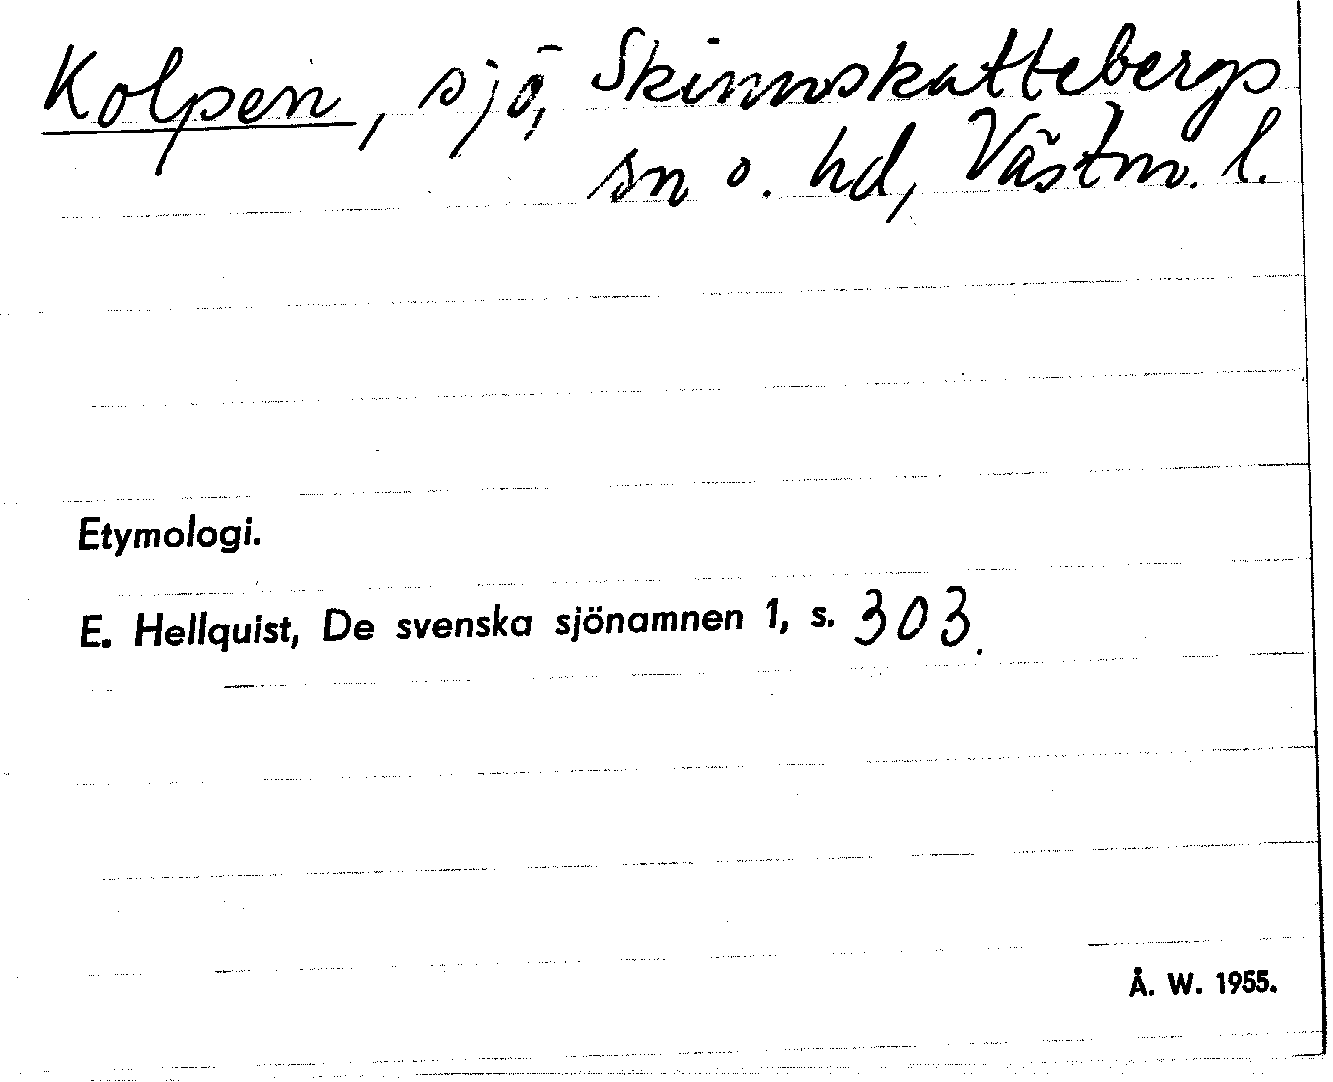 Kolpen, sjö, Skinnskattebergs
sn o. hd, Västm. l.
Etymologi.
E. Hellquist, De svenska sjönamnen 1, s. 303.
Å. W. 1955.